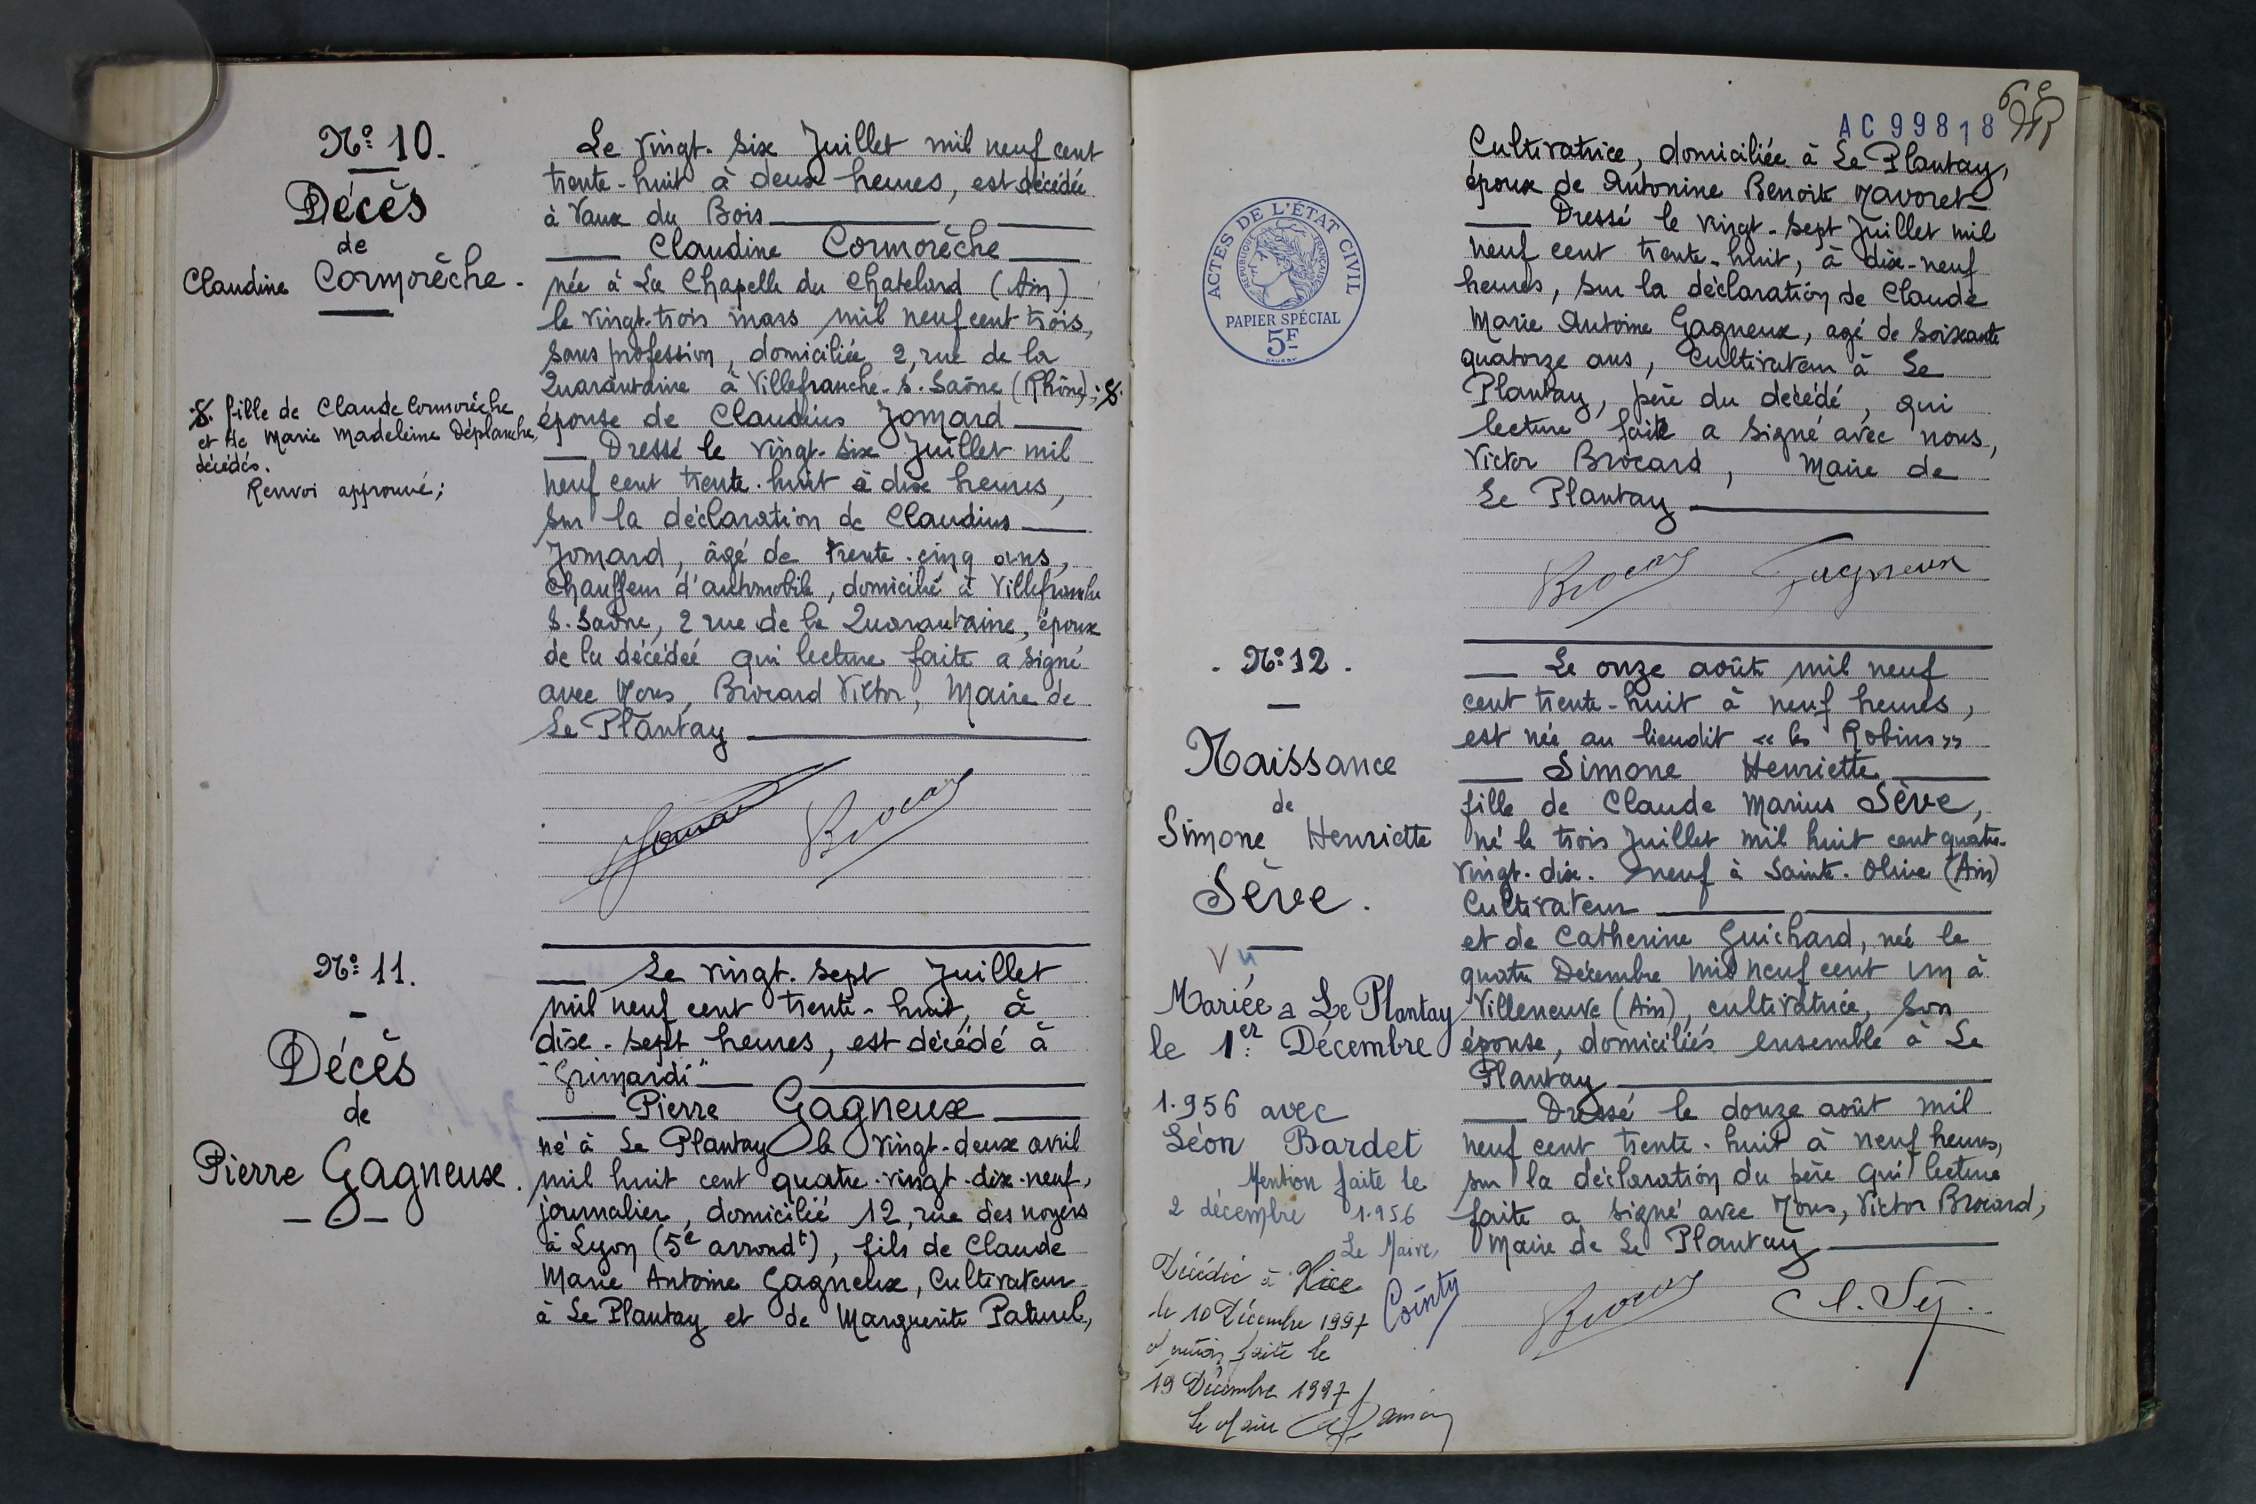 Nº 10.
Décès
de
Claudine Cormorèche.
Le vingt-six Juillet mil neuf cent
trente-huit à deux heures, est décédée
à Vaux du Bois
Claudine Cormorèche
née à La Chapelle du Chatelard (Ain)
le vingt-trois mars mil neuf cent trois,
sans profession, domiciliée 2, rue de la
Quarantaine à Villefranche-s.-Saône (Rhône);
fille de Claude Cormorèche
et de Marie Madeleine Déplanche,
décédés.
Renvoi approuvé;
épouse de Claudius Jomard
Dressé le vingt-six Juillet mil
neuf cent trente-huit à dix heures,
sur la déclaration de Claudius
Jomard, âgé de trente-cinq ans,
chauffeur d'automobile, domicilié à Villefranche
s.-Saône, 2 rue de la Quarantaine, époux
de la décédée qui lecture faite a signé
avec Nous, Brocard Victor, Maire de
Le Plantay
Jomard Brocard
Nº 11.
Décès
de
Pierre Gagneux.
Le vingt-sept Juillet
mil neuf cent trente-huit, à
dix-sept heures, est décédé à
"Grimardi"
Pierre Gagneux
né à Le Plantay le vingt-deux avril
mil huit cent quatre-vingt-dix-neuf,
journalier, domicilié 12, rue des noyers
à Lyon (5e arrondt), fils de Claude
Marie Antoine Gagneux, Cultivateur
à Le Plantay et de Marguerite Paturel,
AC 99818
Cultivatrice, domiciliée à Le Plantay,
époux de Antonine Benoîte Navoret
Dressé le vingt-sept Juillet mil
neuf cent trente-huit, à dix-neuf
heures, sur la déclaration de Claude
Marie Antoine Gagneux, agé de soixante
quatorze ans, Cultivateur à Le
Plantay, père du décédé, qui
lecture faite a signé avec nous,
Victor Brocard, Maire de
Le Plantay
Brocard Gagneux
ACTES DE L'ÉTAT CIVIL
RÉPUBLIQUE FRANÇAISE
PAPIER SPÉCIAL
5F
Nº 12.
Naissance
de
Simone Henriette
Sève.
Vu
Mariée a Le Plantay
le 1er Décembre
1.956 avec
Léon Bardet
Mention faite le
2 décembre 1.956
Le Maire,
Cointy
Décédée à Nice
le 10 Décembre 1997
Mention faite le
19 Décembre 1997
Le Maire
Le onze août mil neuf
cent trente-huit à neuf heures,
est née au lieudit « les Robins »
Simone Henriette
fille de Claude Marius Sève,
né le trois Juillet mil huit cent quatre-
vingt-dix-neuf à Sainte-Olive (Ain)
Cultivateur
et de Catherine Guichard, née le
quatre Décembre mil neuf cent un à
Villeneuve (Ain), cultivatrice, son
épouse, domiciliés ensemble à Le
Plantay
Dressé le douze août mil
neuf cent trente-huit à neuf heures,
sur la déclaration du père qui lecture
faite a signé avec Nous, Victor Brocard,
Maire de Le Plantay
Brocard Cl. Sève